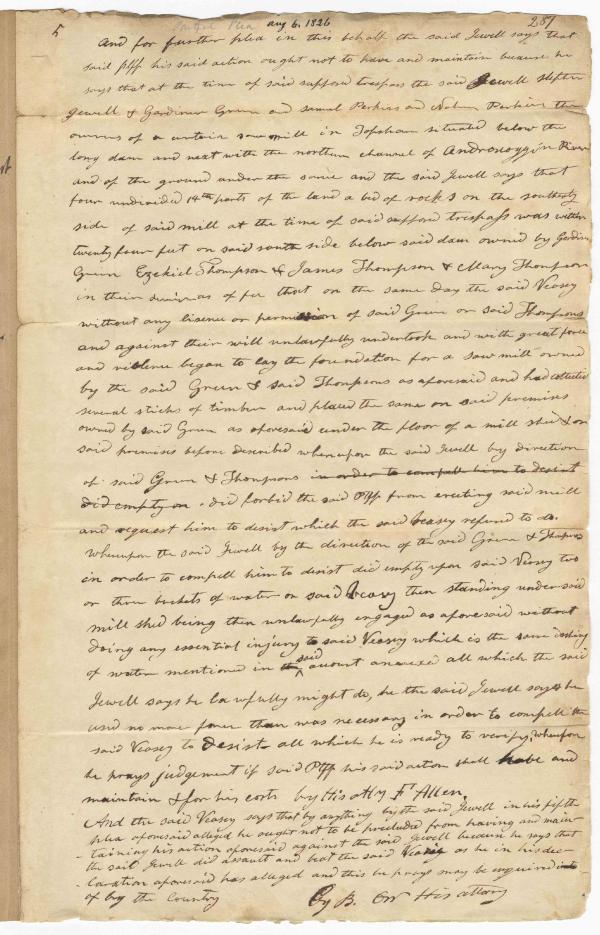 5 aug 6. 1826 281
And for further plea in this behalf the said Jewell says that
said plff his said action ought not to have and maintain because he
says that at the time of said supposed trespass the said Jewell Stephen
Jewell & Gardiner Green and Samel Perkins and Nahum Perkins the
owners of a certain saw mill in Topsham situated below the
long dam and next with the northern channel of Androscoggin River
and of the ground under the same and the said Jewell says that
four undivided 14th parts of the land a bed of rocks on the southerly
side of said mill at the time of said supposed trespass was within
twenty four feet on said south side below said dam owned by Gardiner
Green Ezekiel Thompson & James Thompson & Mary Thompson
in their as of fee that on the same day the said Veasey
without any lisence or permission of said Green or said Thompsons
and against their will unlawfully undertook and with great force
and violence began to lay the foundation for a saw mill owned
by the said Green & said Thompsons as aforesaid and had collected
several sticks of timber and placed the same on said premises
owned by said Green as aforesaid under the floor of a mill shed & on
said premises before described whereupon the said Jewell by direction
of said Green & Thompsons in order to compell him to desist
did empty on . did forbid the said Plff from erecting said mill
and request him to desist which the said Veasey refused to do.
Whereupon the said Jewell by the direction of the said Green & Thompsons
in order to compell him to desist did empty upon said Veasey two
or three buckets of water on said Veasey then standing under said
mill shed being then unlawfully engaged as aforesaid without
doing any essential injury to said Veasey which is the same
of water mentioned in the said account annexed all which the said
Jewell says he lawfully might do, he the said Jewell says he
used no more force than was necessary in order to compell the
said Veasey to desist all which he is ready to verify, wherefore
he prays judgement if said Plff his said action shall have and
maintain & for his costs by His atty F. Allen.
And the said Veasey says that by anything by the said Jewell in his fifth
plea aforesaid alleged he ought not to be precluded from having and main-
-taining his action aforesaid against the said Jewell because he says that
the said Jewell did assault and beat the said Veasey as he in his dec-
-laration aforesaid has alleged and this he prays may be inquired into
of by the Country By B. Orr His attorny